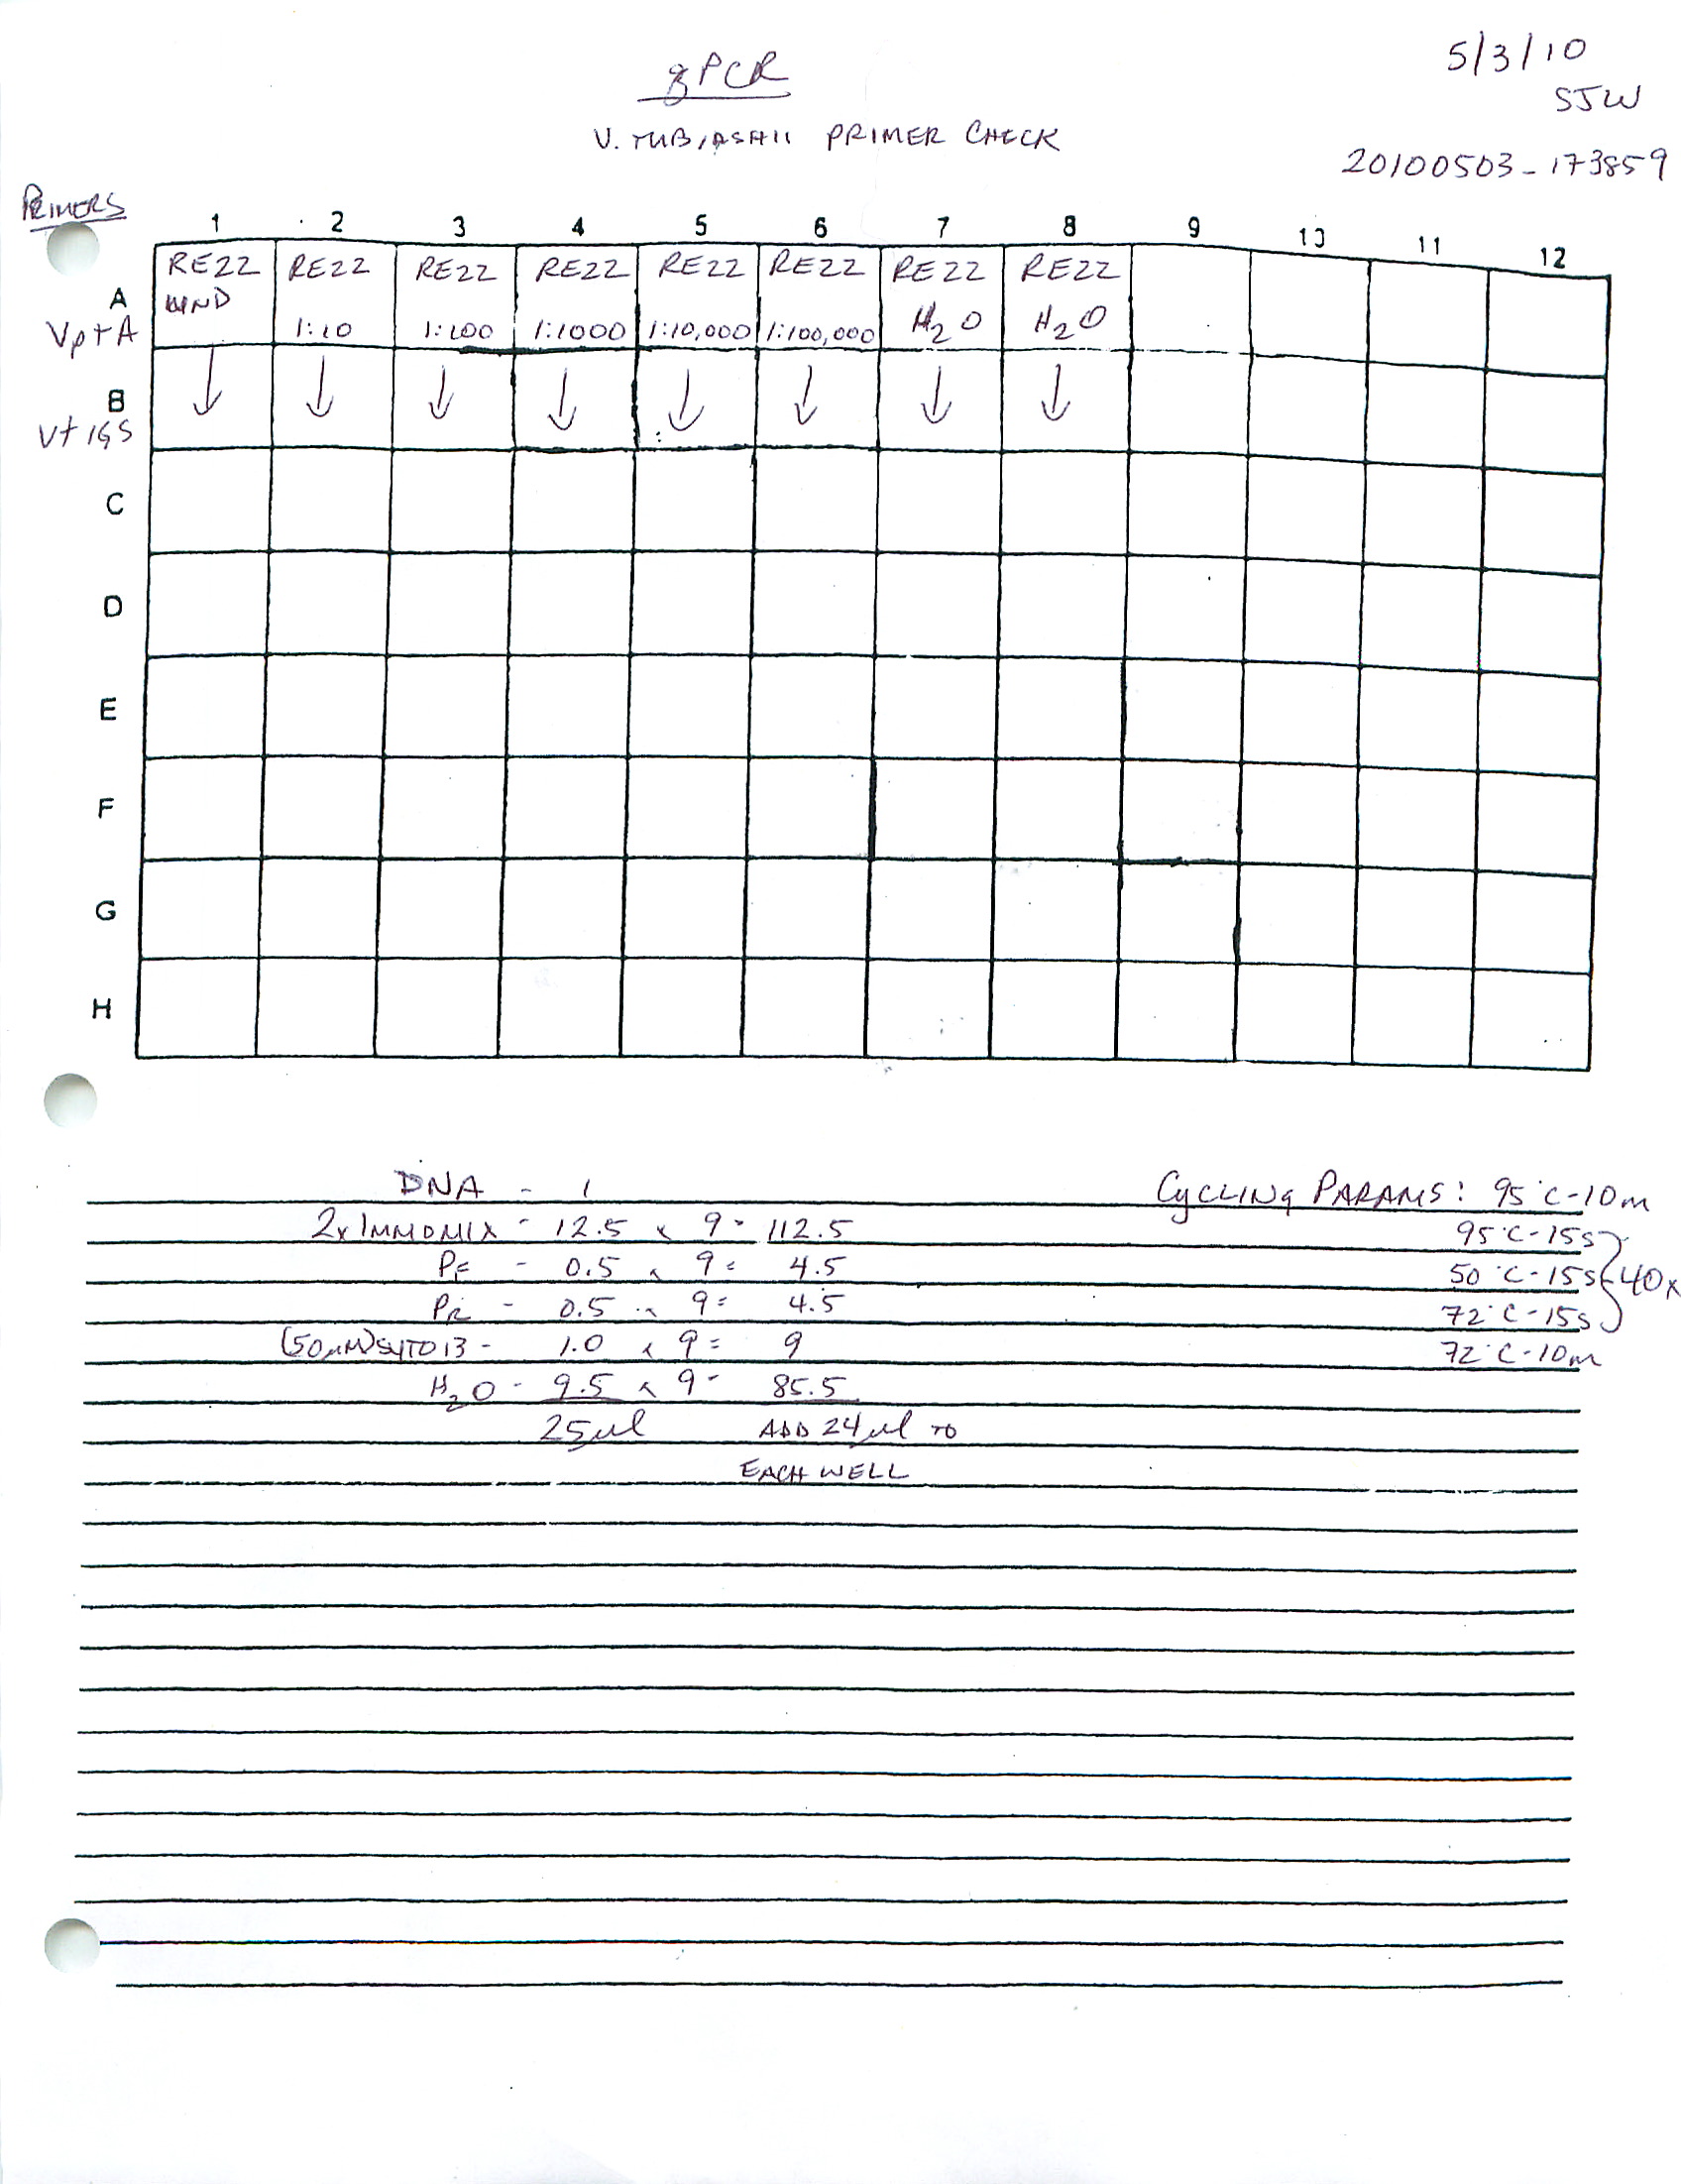 qPCR
5/3/10
SJW
V. TUBIASHII PRIMER CHECK
20100503_173859
PRIMERS
1 2 3 4 5 6 7 8 9 10 11 12
A RE22 RE22 RE22 RE22 RE22 RE22 RE22 RE22
UND
VptA 1:10 1:100 1:1000 1:10,000 1:100,000 H2O H2O
B ↓ ↓ ↓ ↓ ↓ ↓ ↓ ↓
Vt IGS
C
D
E
F
G
H
DNA - 1
Cycling PARAMS: 95°C-10m
2x IMMOMIX - 12.5 x 9 = 112.5
95°C-15s
PF - 0.5 x 9 = 4.5
50°C-15s } 40x
PR - 0.5 x 9 = 4.5
72°C-15s
(50µM) SYTO 13 - 1.0 x 9 = 9
72°C-10m
H2O - 9.5 x 9 = 85.5
25µl ADD 24µl TO
EACH WELL